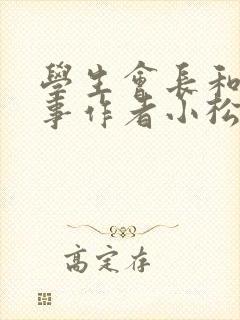 學生會長和
事作者小松
高定存